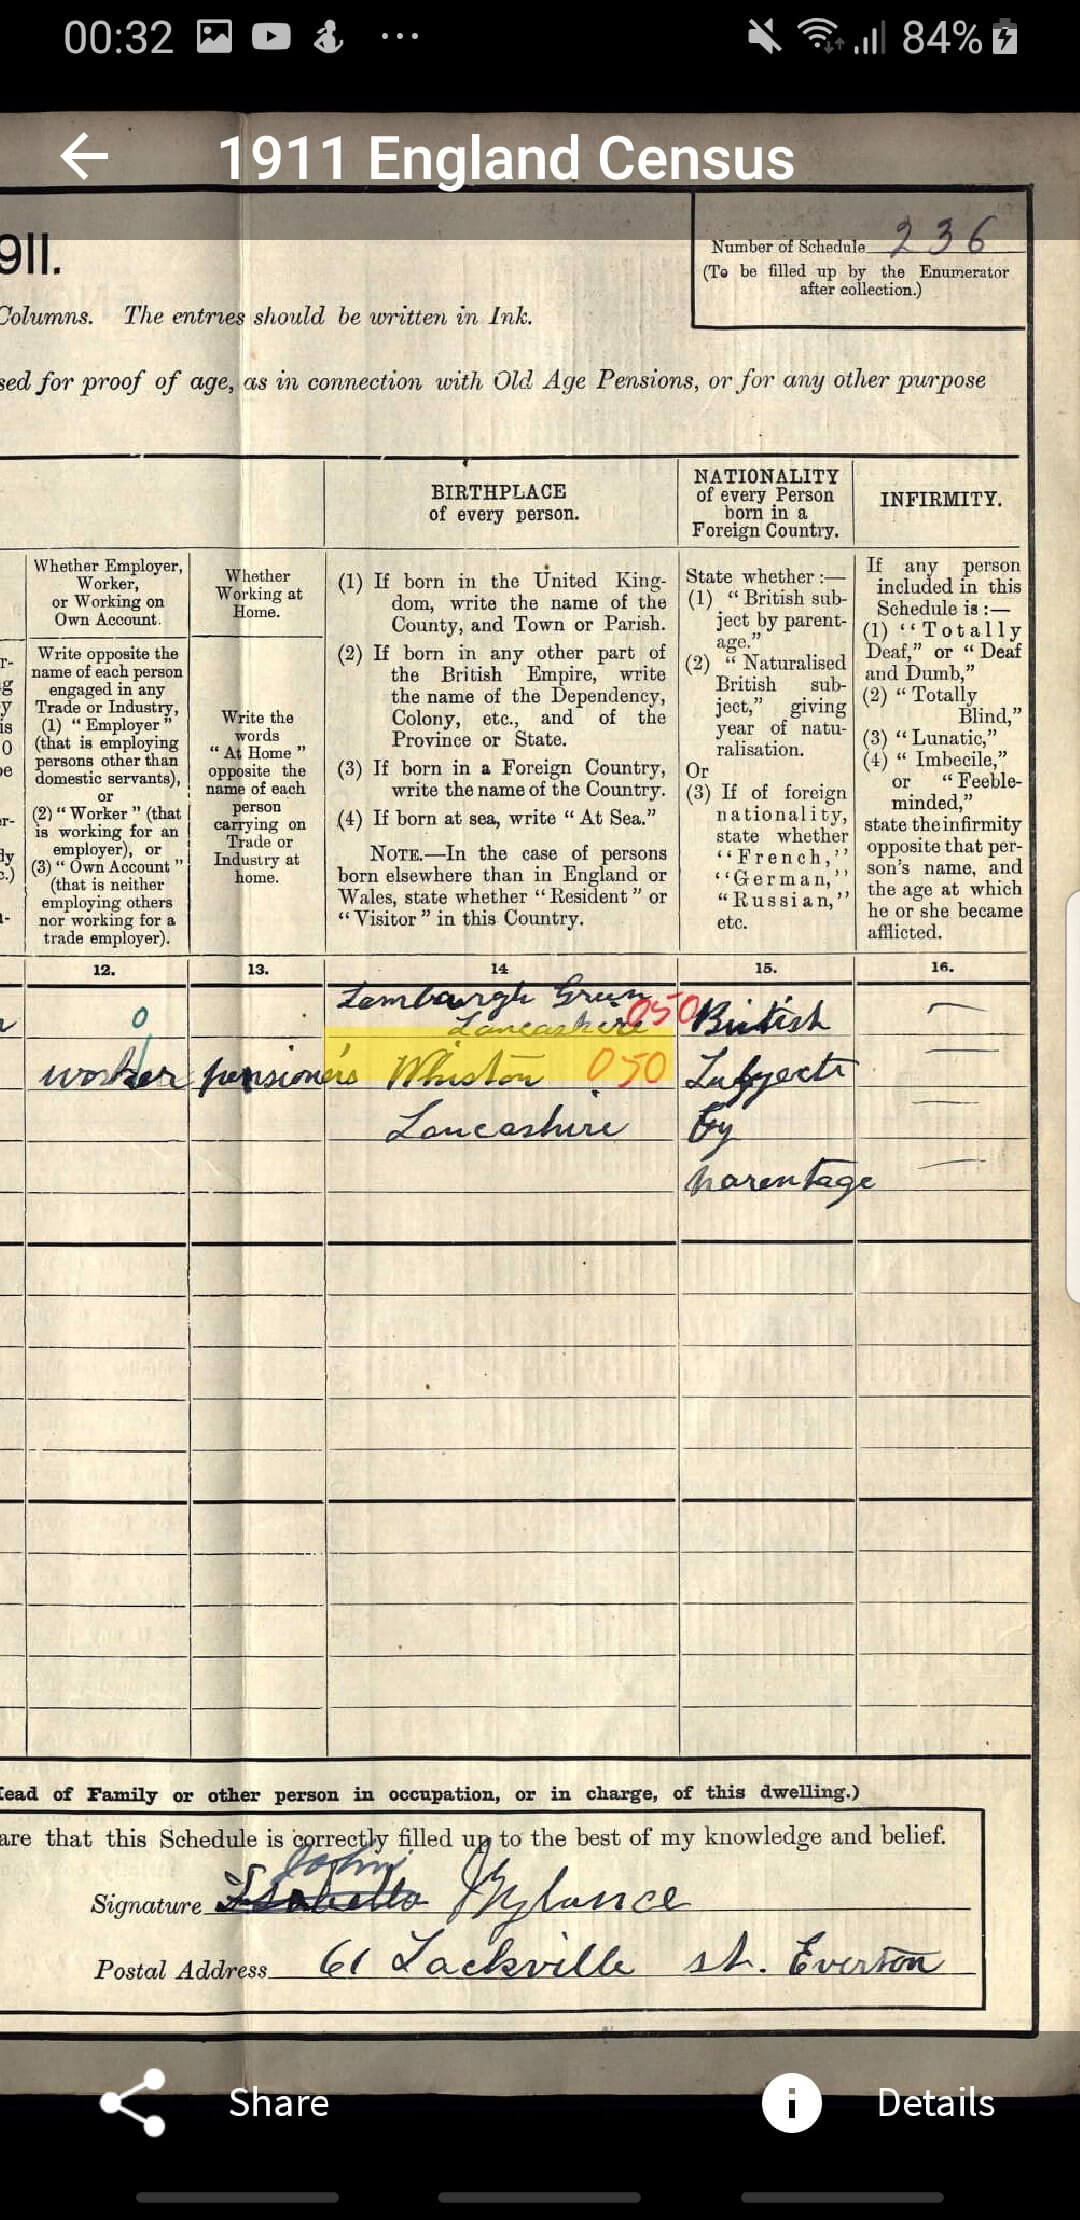 00:32 84%
1911 England Census
911.
Number of Schedule 236
(To be filled up by the Enumerator
after collection.)
Columns. The entries should be written in Ink.
sed for proof of age, as in connection with Old Age Pensions, or for any other purpose
BIRTHPLACE
of every person.
NATIONALITY
of every Person
born in a
Foreign Country.
INFIRMITY.
Whether Employer,
Worker,
or Working on
Own Account.
Write opposite the
name of each person
engaged in any
Trade or Industry,
(1) “Employer”
(that is employing
persons other than
domestic servants),
or
(2) “Worker” (that
is working for an
employer), or
(3) “Own Account”
(that is neither
employing others
nor working for a
trade employer).
Whether
Working at
Home.
Write the
words
“At Home”
opposite the
name of each
person
carrying on
Trade or
Industry at
home.
(1) If born in the United King-
dom, write the name of the
County, and Town or Parish.
(2) If born in any other part of
the British Empire, write
the name of the Dependency,
Colony, etc., and of the
Province or State.
(3) If born in a Foreign Country,
write the name of the Country.
(4) If born at sea, write “At Sea.”
NOTE.—In the case of persons
born elsewhere than in England or
Wales, state whether “Resident” or
“Visitor” in this Country.
State whether:—
(1) “British sub-
ject by parent-
age.”
(2) “Naturalised
British sub-
ject,” giving
year of natu-
ralisation.
Or
(3) If of foreign
nationality,
state whether
“French,”
“German,”
“Russian,”
etc.
If any person
included in this
Schedule is:—
(1) “Totally
Deaf,” or “Deaf
and Dumb,”
(2) “Totally
Blind,”
(3) “Lunatic,”
(4) “Imbecile,”
or “Feeble-
minded,”
state the infirmity
opposite that per-
son's name, and
the age at which
he or she became
afflicted.
12. 13. 14 15. 16.
Green
0 Lancashire 050 British
worker pensioners Whiston 050 Subjects
Lancashire by
parentage
Head of Family or other person in occupation, or in charge, of this dwelling.)
are that this Schedule is correctly filled up to the best of my knowledge and belief.
John
Signature Isabella Mylance
Postal Address 61 Sackville st. Everton
Share Details